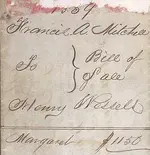 1859
Francis A Mitchel
To } Bill of
Sale
Henry
Margaret $1150